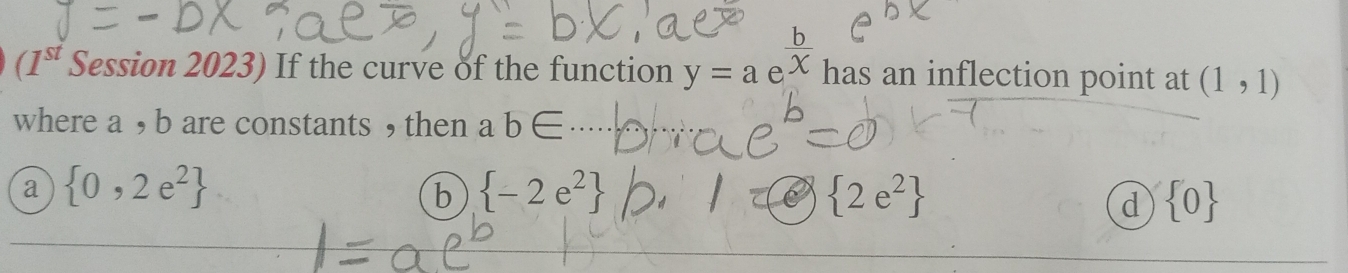 (1st Session 2023) If the curve of the function y = a e^(b/x) has an inflection point at (1 , 1)
where a , b are constants , then a b ∈ ............
b ae^b = 0
ⓐ {0 , 2 e²} ⓑ {– 2 e²} ⓒ {2 e²} ⓓ {0}
1 = ae^b